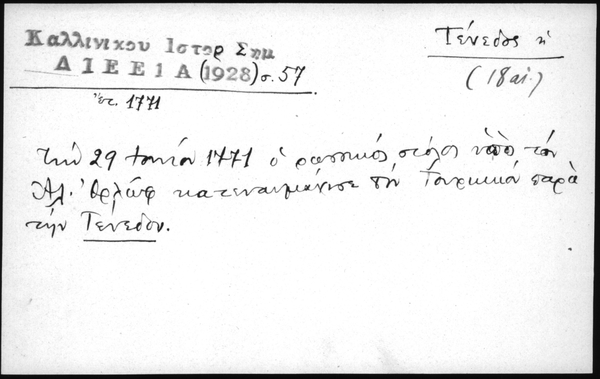 Καλλινικου Ιστορ Σημ
ΔΙΕΕ 1 Α (1928) σ. 57
Τένεδος ἡ
(18 αἰ.)
ἔτ. 1771
Τὴν 29 Ἰουνίου 1771 ὁ ρωσσικός στόλος ὑπὸ τὸν
Ἀλ. Ὀρλώφ κατεναυμάχησε τὸν Τουρκικόν παρὰ
τὴν Τένεδον.